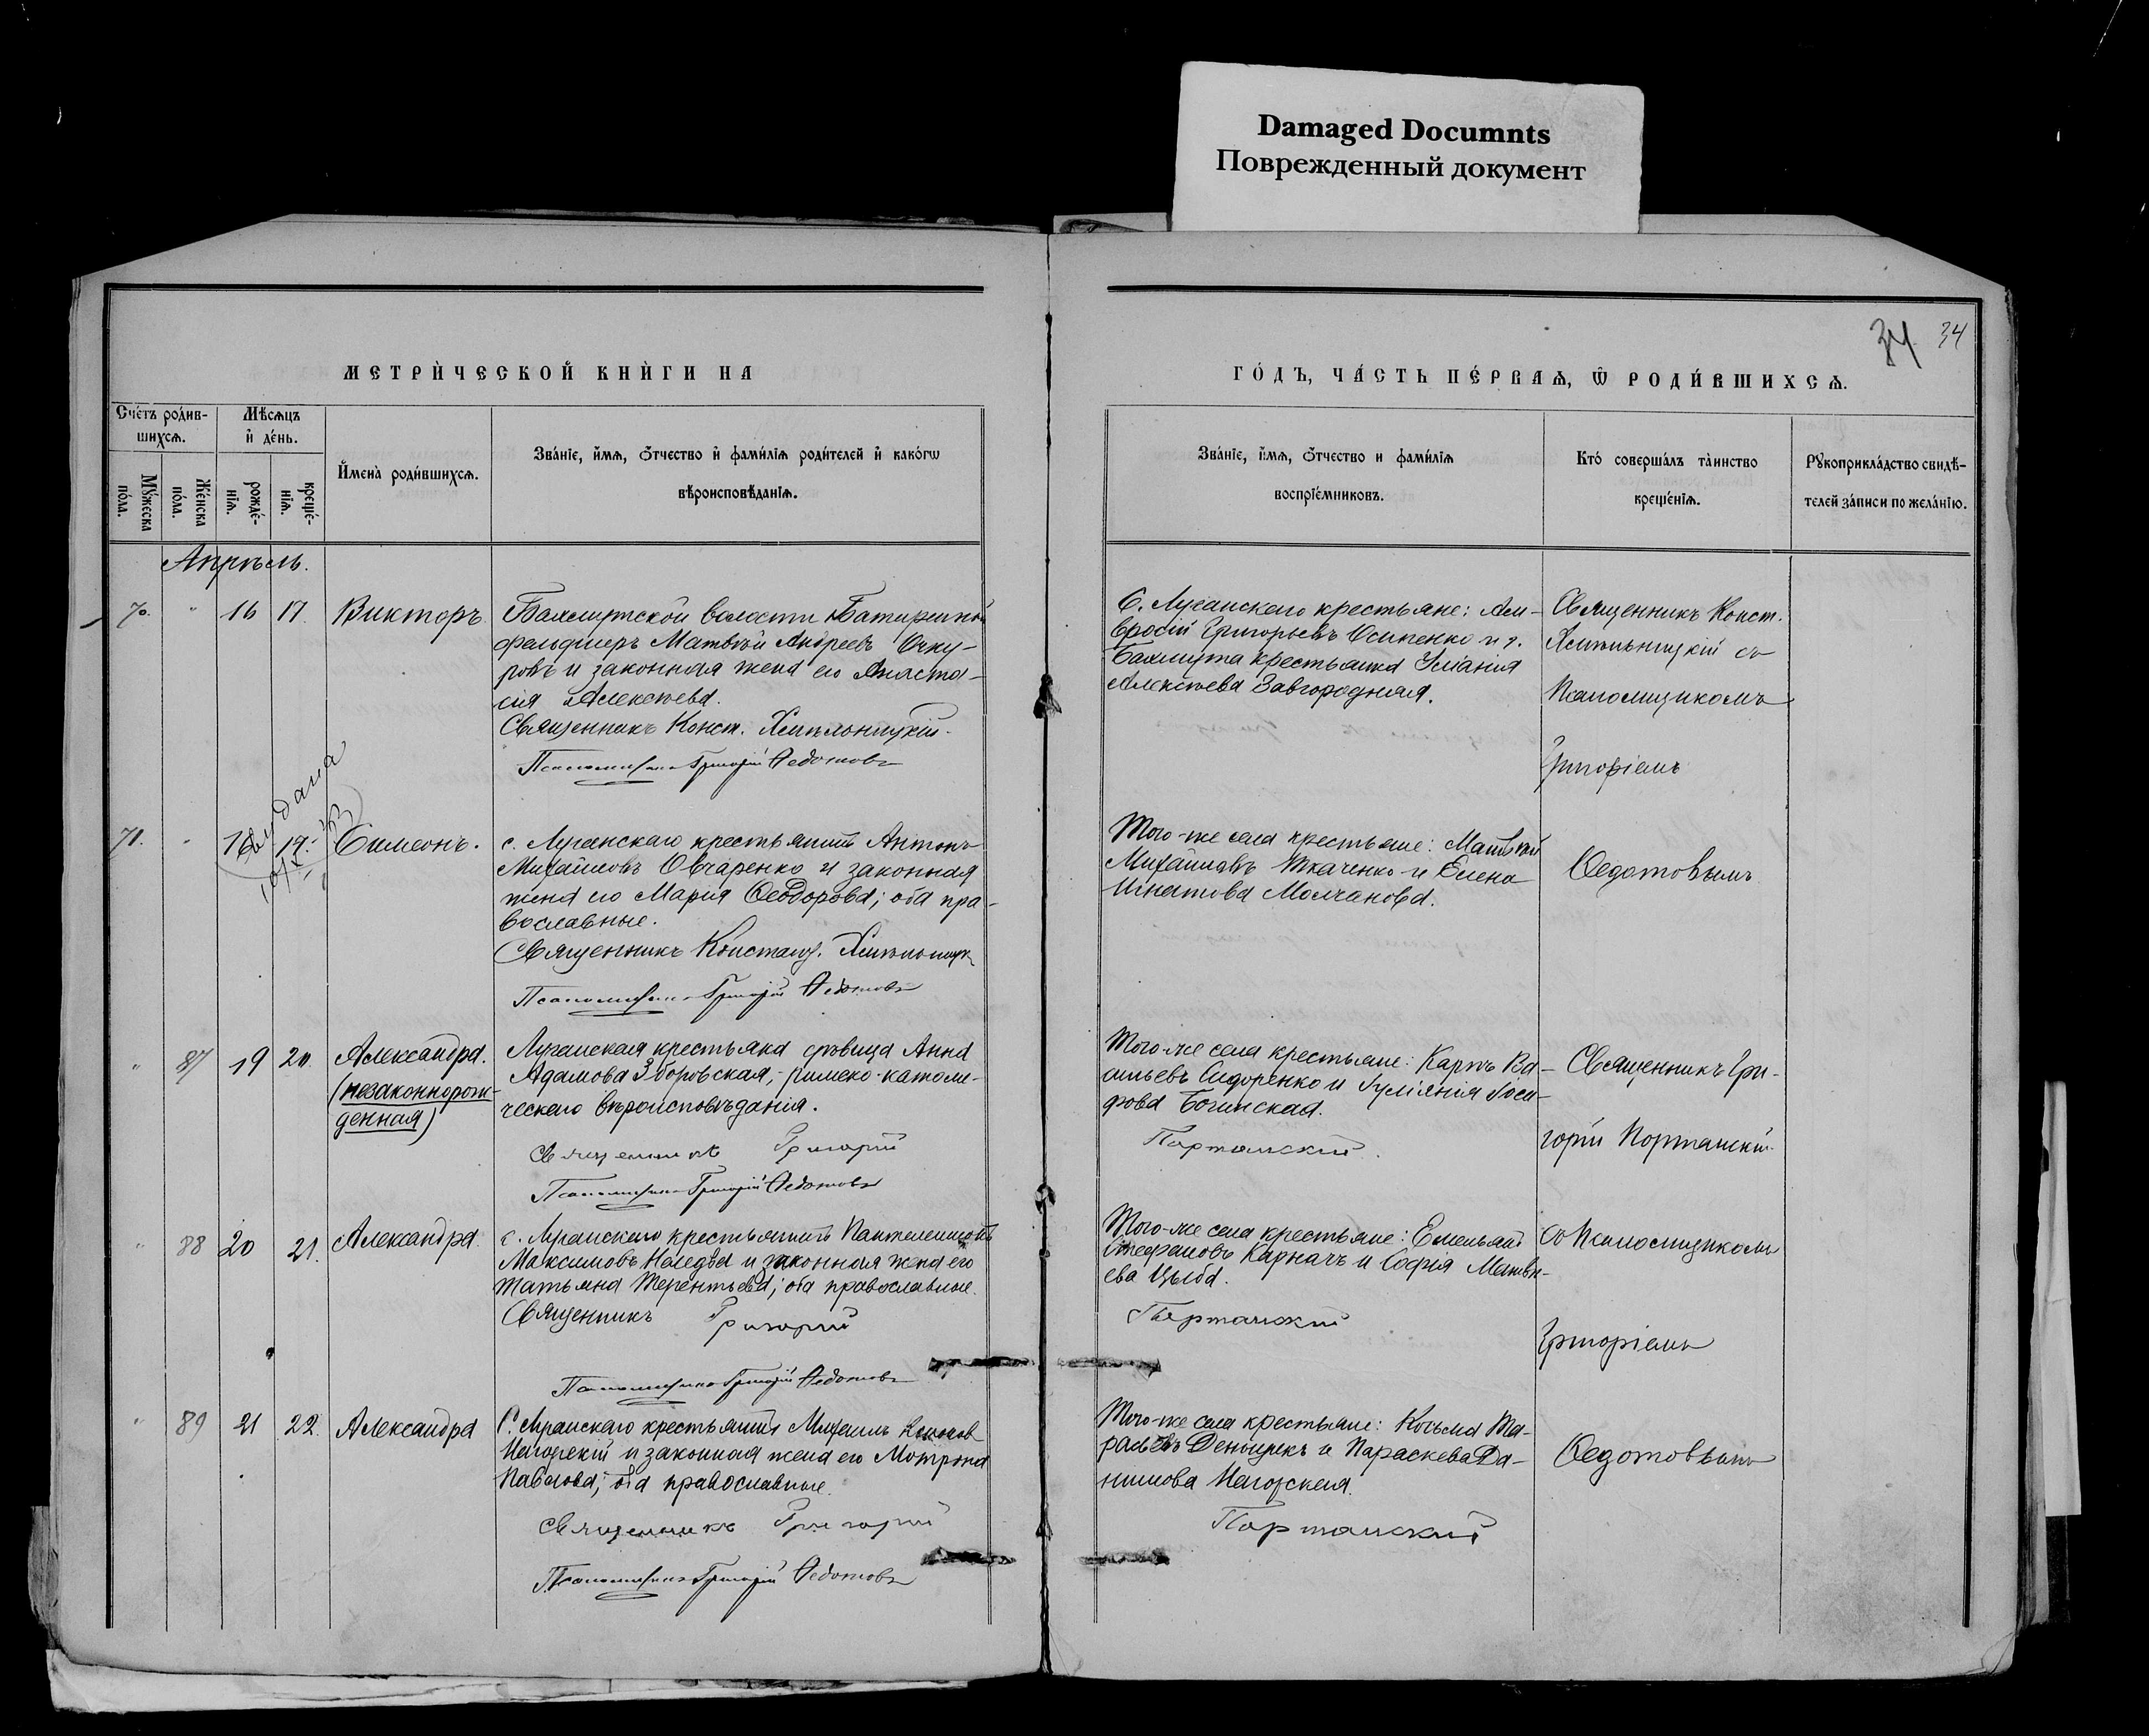 Damaged Documnts
Поврежденный документ
34 34
МЕТРИ́ЧЕСКОЙ КНИ́ГИ НА
ГО́ДЪ, ЧА́СТЬ ПЕ́РВАѦ, Ѿ РОДИ́ВШИХСѦ.
Сче́тъ роди́в-
шихсѧ.
Мѣсѧцъ
и҆ де́нь.
Мꙋ́жеска
по́ла.
Же́нска
по́ла.
рожде́-
нїѧ.
креще́-
нїѧ.
И҆мена̀ роди́вшихсѧ.
Зва́нїе, и҆́мѧ, о҆́тчество и҆ фами́лїѧ роди́телей и҆ како́гѡ
вѣроисповѣ́данїѧ.
Зва́нїе, и҆́мѧ, о҆́тчество и фами́лїѧ
воспрїе́мниковъ.
Кто́ соверша́лъ та̀инство
креще́нїѧ.
Рꙋкоприкла́дство свидѣ́-
телей за́писи по жела́нїю.
Апрѣль.
70. " 16 17. Викторъ.
Бахмутской волости
фельдшеръ Матвѣй Андреевъ Очку-
ровъ и законная жена его Анаста-
сія Алексѣева.
Священникъ Конст. Хмѣльницкій.
Псаломщикъ Григорій Ѳедотовъ
С. Луганскаго крестьяне: Ам-
вросій Григорьевъ Осипенко и г.
Бахмута крестьянка
Алексѣева Завгородная.
Священникъ Конст.
Хмѣльницкій съ
Псаломщикомъ
Григоріемъ
Выдана
71. " 16 17. Симеонъ.
с. Луганскаго крестьянинъ Антонъ
Михайловъ Овчаренко и законная
жена его Марія Ѳеодорова; оба пра-
вославные.
Священникъ Констант. Хмѣльницк
Псаломщикъ Григорій Ѳедотовъ
Того-же села крестьяне: Матвѣй
Михайловъ Ткаченко и Елена
Игнатова Молчанова.
Ѳедотовымъ
" 87 19 20. Александра.
(незаконнорож-
денная)
Луганская крестьянка дѣвица Анна
Адамова Зборовская, римско-католи-
ческаго вѣроисповѣданія.
Священникъ Григорій
Псаломщикъ Григорій Ѳедотовъ
Того-же села крестьяне: Карпъ Ва-
сильевъ Сидоренко и Іуліянія Іоси-
фова Богинская.
Портанскій.
Священникъ Гри-
горій Портанскій
" 88 20 21. Александра.
с. Луганскаго крестьянинъ Пантелеимонъ
Максимовъ и законная жена его
Татьяна Терентьева; оба православные.
Священникъ Григорій
Псаломщикъ Григорій Ѳедотовъ
Того-же села крестьяне: Емельянъ
Стефановъ Карначъ и Софія Матвѣ-
ева Цыба.
Портанскій
съ Псаломщикомъ
Григоріемъ
" 89 21 22. Александра
С. Луганскаго крестьянинъ Михаилъ
Нагорскій и законная жена его Мотрона
Павлова; оба православные.
Священникъ Григорій
Псаломщикъ Григорій Ѳедотовъ
Того-же села крестьяне: Косьма Та-
расьевъ Денщикъ и Параскева Да-
нилова Нагорская.
Портанскій
Ѳедотовымъ